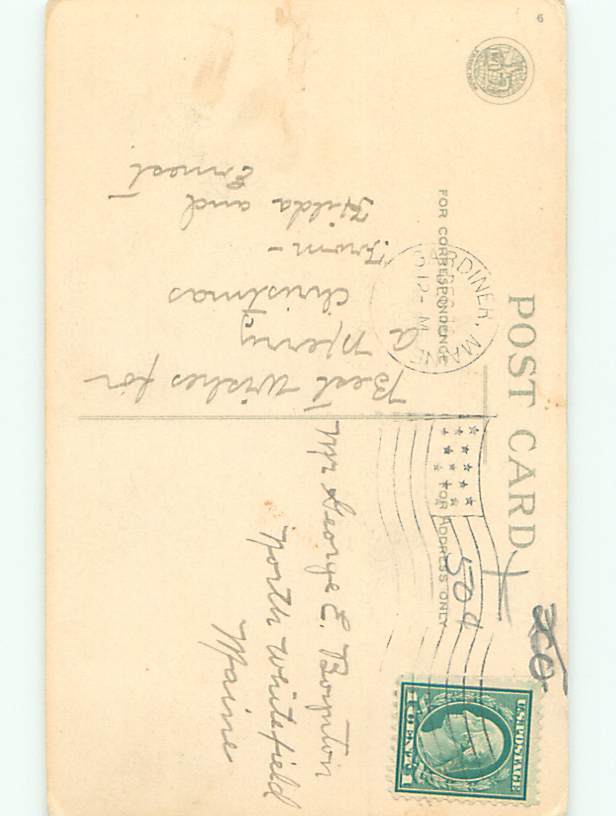 6
POST CARD
FOR CORRESPONDENCE
FOR ADDRESS ONLY
GARDINER, ME
12-M
Best Wishes for
a Merry
Christmas
From -
Hilda and
Ernest
Mr George E. Boynton
North Whitefield
Maine
504
U.S. POSTAGE
1 CENT 1